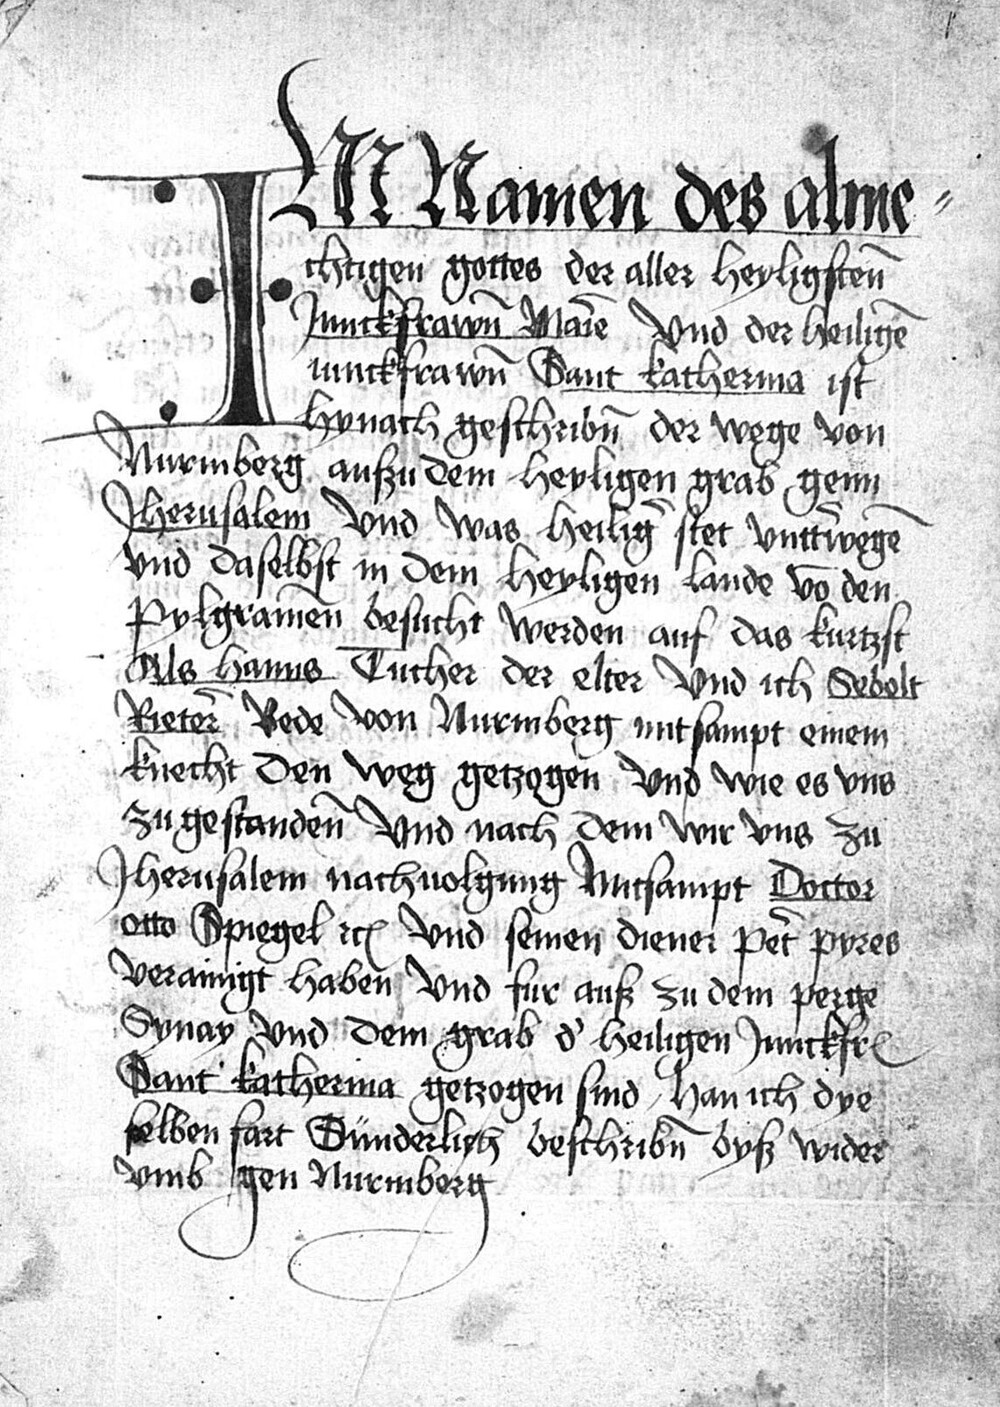 IM Namen des alme-
chtigen gottes der aller heyligsten̄
Junckfrawn̄ Marie Vnd der heilige̅
iunckfrawn̄ Sant katherina ist
hynach geschribn̄ der wege von
Nurmberg auszu dem heyligen grab genn
Jherusalem Vnd was heilig stet vntt̄wege̅
vnd daselbst in dem heyligen lande vo̅ den
Pylgramen besucht werden auf das kurtzst
Als hanns Tucher der elter Vnd ich Sebolt
Rieter Bede von Nurmberg mitsampt einem
knecht Den weg getzogen Vnd wie es vns
zu gestanden̄ Vnd nach dem wir vns zu
Jherusalem nachuolgung Mitsampt Doctor
otto Spiegel rc Vnd seinen diener Pet̄ pyres
verainigt haben Vnd fur auß zu dem perge
Synay Vnd dem grab d' heiligen Junckfr
Sant katherina getzogen sind han ich dye
selben fart Sünderlich beschribn̄ byß wider
vmb gen Nurmberg